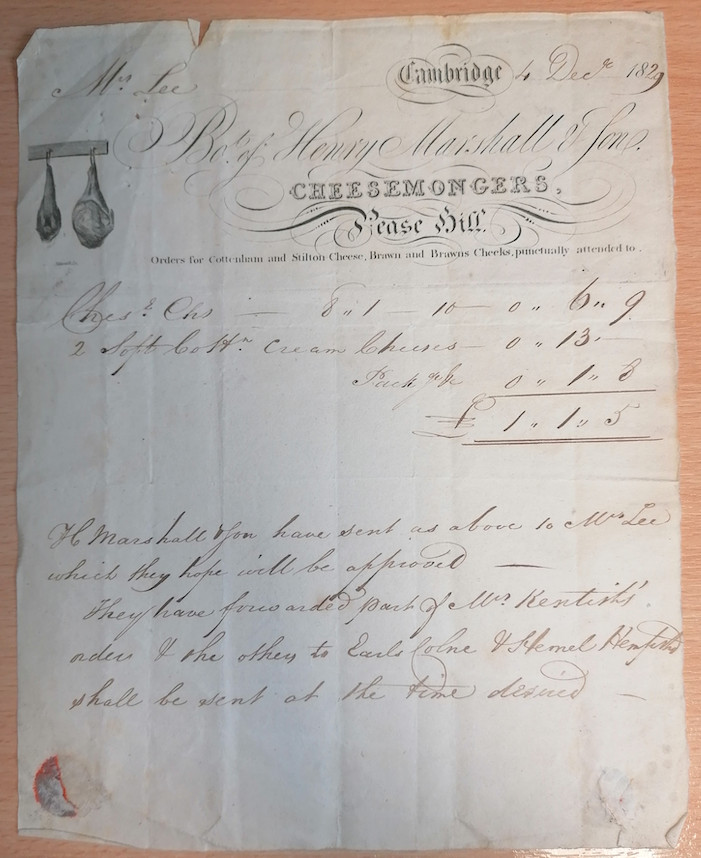 Mrs Lee
Cambridge 4 Decr 1829
Bot. of Henry Marshall & Son.
CHEESEMONGERS,
Pease Hill.
Orders for Cottenham and Stilton Cheese, Brawn and Brawns Cheeks, punctually attended to.
Ches.r Chs — 8 " 1 — 10 — 0 " 6 " 9
2 Soft Cottn Cream Cheeses — 0 " 13 . —
Packge &c 0 " 1 " 8
£ 1 " 1 " 5
H Marshall & Son have sent as above to Mrs Lee
which they hope will be approved —
They have forwarded part of Mrs Kentish's
order & the others to Earls Colne & Hemel Hempstd
shall be sent at the time desired —